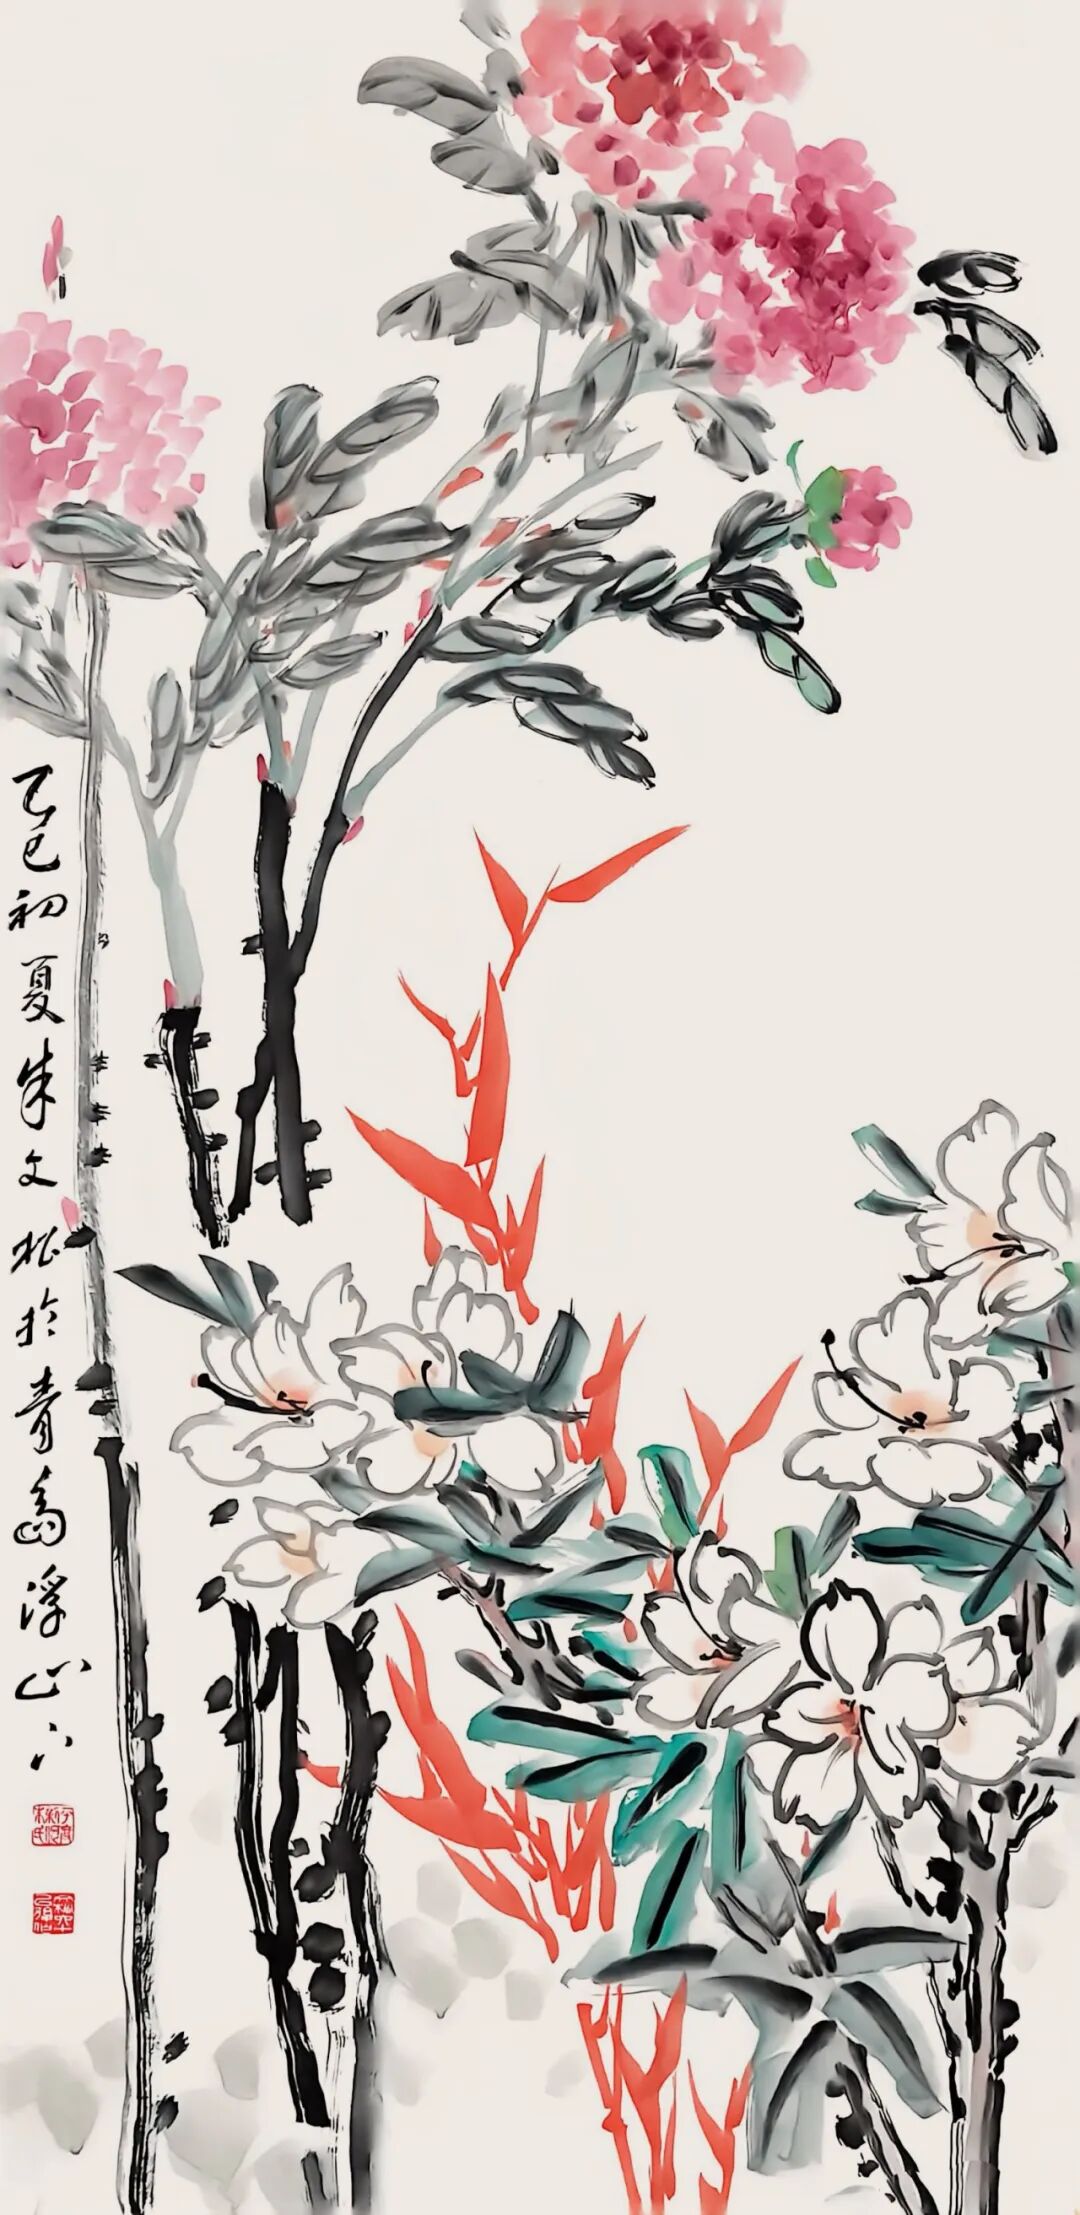 乙巳初夏朱文松於青島浮山下